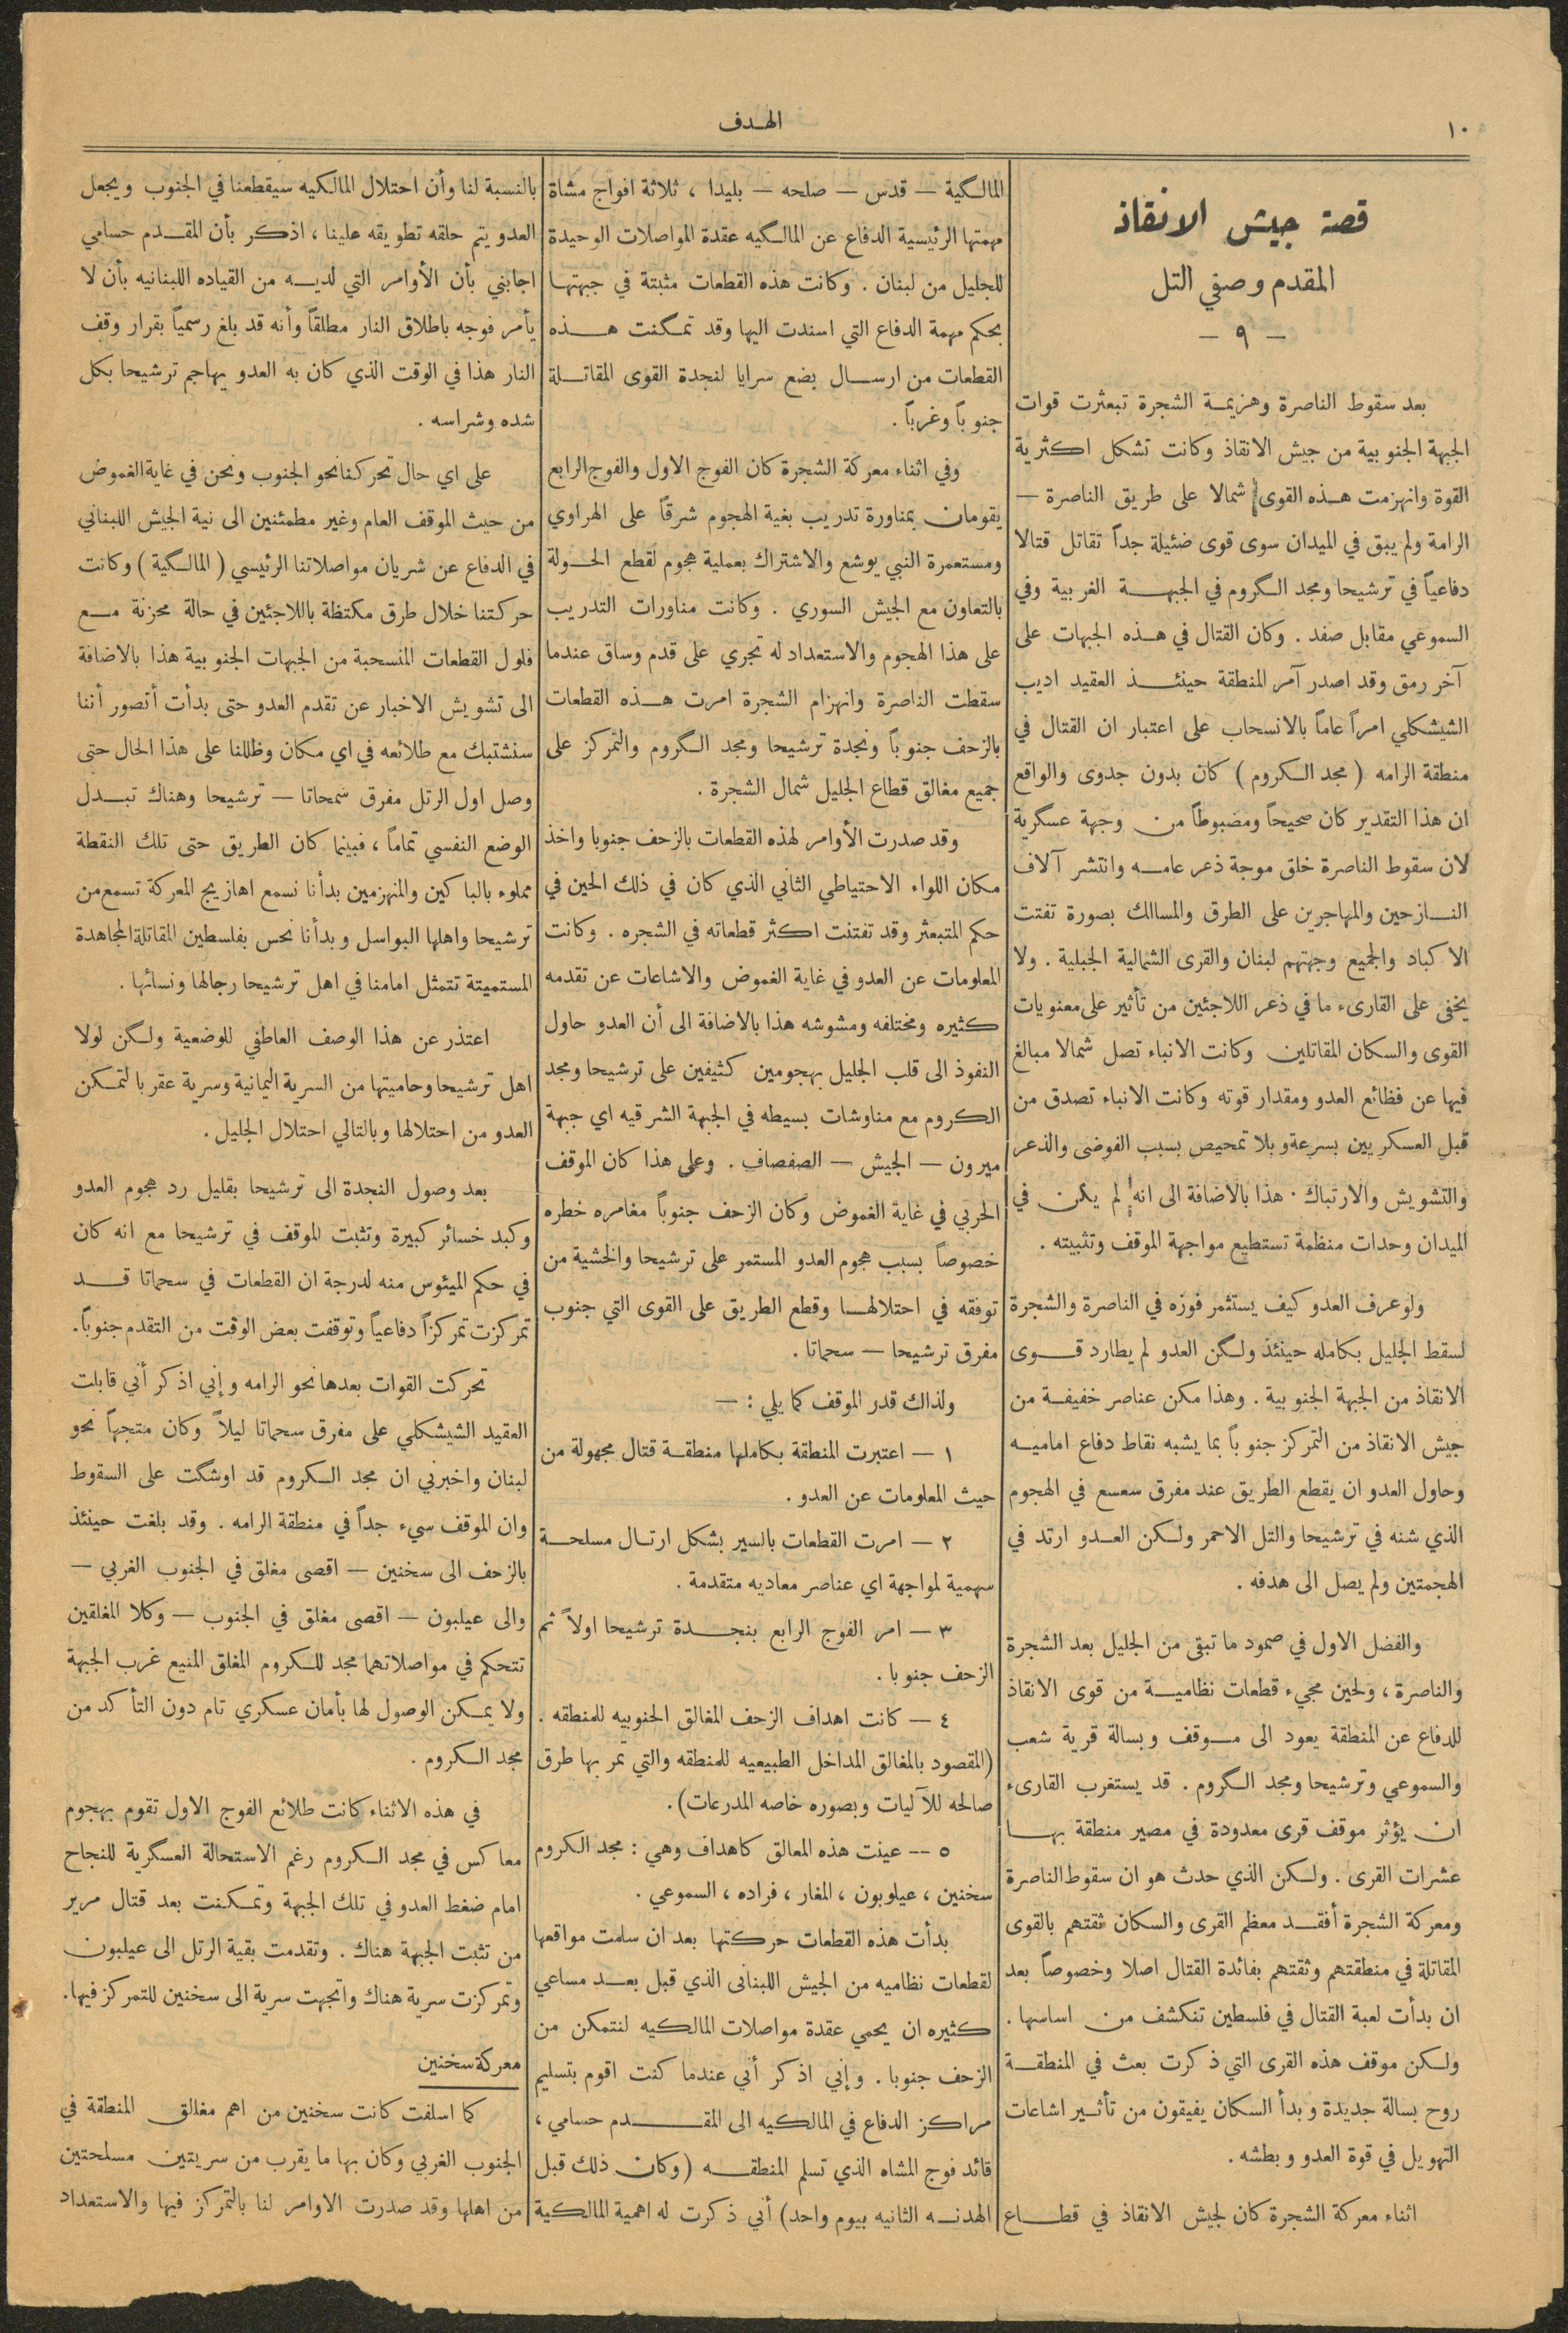 ١٠
الهدف
قصة جيش الانقاذ
المقدم وصفي التل
— ٩ —
بعد سقوط الناصرة وهزيمة الشجرة تبعثرت قوات
الجبهة الجنوبية من جيش الانقاذ وكانت تشكل اكثرية
القوة وانهزمت هذه القوى شمالا على طريق الناصرة —
الرامة ولم يبق في الميدان سوى قوى ضئيلة جداً تقاتل قتالا
دفاعياً في ترشيحا ومجد الكروم في الجبهة الغربية وفي
السموعي مقابل صفد . وكان القتال في هذه الجبهات على
آخر رمق وقد اصدر آمر المنطقة حينئذ العقيد اديب
الشيشكلي امراً عاماً بالانسحاب على اعتبار ان القتال في
منطقة الرامه ( مجد الكروم ) كان بدون جدوى والواقع
ان هذا التقدير كان صحيحاً ومضبوطاً من وجهة عسكرية
لان سقوط الناصرة خلق موجة ذعر عامه وانتشر آلاف
النازحين والمهاجرين على الطرق والمسالك بصورة تفتت
الاكباد والجميع وجهتهم لبنان والقرى الشمالية الجبلية . ولا
يخفى على القارىء ما في ذعر اللاجئين من تأثير على معنويات
القوى والسكان المقاتلين وكانت الانباء تصل شمالا مبالغ
فيها عن فظائع العدو ومقدار قوته وكانت الانباء تصدق من
قبل العسكريين بسرعة وبلا تمحيص بسبب الفوضى والذعر
والتشويش والارتباك . هذا بالاضافة الى انه لم يكن في
الميدان وحدات منظمة تستطيع مواجهة الموقف وتثبيته .
ولو عرف العدو كيف يستثمر فوزه في الناصرة والشجرة
لسقط الجليل بكامله حينئذ ولكن العدو لم يطارد قوى
الانقاذ من الجبهة الجنوبية . وهذا مكن عناصر خفيفة من
جيش الانقاذ من التمركز جنوباً بما يشبه نقاط دفاع اماميه
وحاول العدو ان يقطع الطريق عند مفرق سعسع في الهجوم
الذي شنه في ترشيحا والتل الاحمر ولكن العدو ارتد في
الهجمتين ولم يصل الى هدفه .
والفضل الاول في صمود ما تبقى من الجليل بعد الشجرة
والناصرة ، ولحين مجيء قطعات نظامية من قوى الانقاذ
للدفاع عن المنطقة يعود الى موقف وبسالة قرية شعب
والسموعي وترشيحا ومجد الكروم . قد يستغرب القارىء
ان يؤثر موقف قرى معدودة في مصير منطقة بها
عشرات القرى . ولكن الذي حدث هو ان سقوط الناصرة
ومعركة الشجرة أفقد معظم القرى والسكان ثقتهم بالقوى
المقاتلة في منطقتهم وثقتهم بفائدة القتال اصلا وخصوصاً بعد
ان بدأت لعبة القتال في فلسطين تنكشف من اساسها .
ولكن موقف هذه القرى التي ذكرت بعث في المنطقة
روح بسالة جديدة وبدأ السكان يفيقون من تأثير اشاعات
التهويل في قوة العدو وبطشه .
اثناء معركة الشجرة كان لجيش الانقاذ في قطاع
المالكية — قدس — صلحه — بليدا ، ثلاثة افواج مشاة
مهمتها الرئيسية الدفاع عن المالكيه عقدة المواصلات الوحيدة
للجليل من لبنان . وكانت هذه القطعات مثبتة في جبهتها
بحكم مهمة الدفاع التي اسندت اليها وقد تمكنت هذه
القطعات من ارسال بضع سرايا لنجدة القوى المقاتلة
جنوباً وغرباً .
وفي اثناء معركة الشجرة كان الفوج الاول والفوج الرابع
يقومان بمناورة تدريب بغية الهجوم شرقاً على الهراوي
ومستعمرة النبي يوشع والاشتراك بعملية هجوم لقطع الحولة
بالتعاون مع الجيش السوري . وكانت مناورات التدريب
على هذا الهجوم والاستعداد له تجري على قدم وساق عندما
سقطت الناصرة وانهزام الشجرة امرت هذه القطعات
بالزحف جنوباً ونجدة ترشيحا ومجد الكروم والتمركز على
جميع مغالق قطاع الجليل شمال الشجرة .
وقد صدرت الأوامر لهذه القطعات بالزحف جنوبا واخذ
مكان اللواء الاحتياطي الثاني الذي كان في ذلك الحين في
حكم المتبعثر وقد تفتتت اكثر قطعاته في الشجره . وكانت
المعلومات عن العدو في غاية الغموض والاشاعات عن تقدمه
كثيره ومختلفه ومشوشه هذا بالاضافة الى أن العدو حاول
النفوذ الى قلب الجليل بهجومين كثيفين على ترشيحا ومجد
الكروم مع مناوشات بسيطه في الجبهة الشرقيه اي جبهة
ميرون — الجيش — الصفصاف . وعلى هذا كان الموقف
الحربي في غاية الغموض وكان الزحف جنوباً مغامره خطره
خصوصاً بسبب هجوم العدو المستمر على ترشيحا والخشية من
توفقه في احتلالها وقطع الطريق على القوى التي جنوب
مفرق ترشيحا — سحماتا .
ولذاك قدر الموقف كما يلي : —
١ — اعتبرت المنطقة بكاملها منطقة قتال مجهولة من
حيث المعلومات عن العدو .
٢ — امرت القطعات بالسير بشكل ارتال مسلحة
سهمية لمواجهة اي عناصر معاديه متقدمة .
٣ — امر الفوج الرابع بنجدة ترشيحا اولاً ثم
الزحف جنوبا .
٤ — كانت اهداف الزحف المغالق الجنوبيه للمنطقه .
(المقصود بالمغالق المداخل الطبيعيه للمنطقه والتي تمر بها طرق
صالحه للآليات وبصوره خاصه المدرعات).
٥ -- عينت هذه المعالق كاهداف وهي : مجد الكروم
سخنين ، عيلوبون ، المغار ، فراده ، السموعي .
بدأت هذه القطعات حركتها بعد ان سلمت مواقعها
لقطعات نظاميه من الجيش اللبناني الذي قبل بعد مساعي
كثيره ان يحمي عقدة مواصلات المالكيه لنتمكن من
الزحف جنوبا . وإني اذكر أني عندما كنت اقوم بتسليم
مراكز الدفاع في المالكيه الى المقدم حسامي ،
قائد فوج المشاه الذي تسلم المنطقه (وكان ذلك قبل
الهدنه الثانيه بيوم واحد) أني ذكرت له اهمية المالكية
بالنسبة لنا وأن احتلال المالكيه سيقطعنا في الجنوب ويجعل
العدو يتم حلقه تطويقه علينا ، اذكر بأن المقدم حسامي
اجابني بأن الأوامر التي لديه من القياده اللبنانيه بأن لا
يأمر فوجه باطلاق النار مطلقاً وأنه قد بلغ رسمياً بقرار وقف
النار هذا في الوقت الذي كان به العدو يهاجم ترشيحا بكل
شده وشراسه .
على اي حال تحركنا نحو الجنوب ونحن في غاية الغموض
من حيث الموقف العام وغير مطمئنين الى نية الجيش اللبناني
في الدفاع عن شريان مواصلاتنا الرئيسي ( المالكية ) وكانت
حركتنا خلال طرق مكتظة باللاجئين في حالة محزنة مع
فلول القطعات المنسحبة من الجبهات الجنوبية هذا بالاضافة
الى تشويش الاخبار عن تقدم العدو حتى بدأت أتصور أننا
سنشتبك مع طلائعه في اي مكان وظللنا على هذا الحال حتى
وصل اول الرتل مفرق سمحاتا — ترشيحا وهناك تبدل
الوضع النفسي تماماً ، فبينما كان الطريق حتى تلك النقطة
مملوء بالباكين والمنهزمين بدأنا نسمع اهازيج المعركة تسمع من
ترشيحا واهلها البواسل وبدأنا نحس بفلسطين المقاتلة المجاهدة
المستميتة تتمثل امامنا في اهل ترشيحا رجالها ونسائها .
اعتذر عن هذا الوصف العاطفي للوضعية ولكن لولا
اهل ترشيحا وحاميتها من السرية اليمانية وسرية عقربا لتمكن
العدو من احتلالها وبالتالي احتلال الجليل .
بعد وصول النجدة الى ترشيحا بقليل رد هجوم العدو
وكبد خسائر كبيرة وتثبت الموقف في ترشيحا مع انه كان
في حكم الميئوس منه لدرجة ان القطعات في سحماتا قد
تمركزت تمركزاً دفاعياً وتوقفت بعض الوقت من التقدم جنوباً.
تحركت القوات بعدها نحو الرامه وإني اذكر أني قابلت
العقيد الشيشكلي على مفرق سحماتا ليلاً وكان متجهاً نحو
لبنان واخبرني ان مجد الكروم قد اوشكت على السقوط
وان الموقف سيء جداً في منطقة الرامه . وقد بلغت حينئذ
بالزحف الى سخنين — اقصى مغلق في الجنوب الغربي —
والى عيلبون — اقصى مغلق في الجنوب — وكلا المغلقين
تتحكم في مواصلاتهما مجد للكروم المغلق المنيع غرب الجبهة
ولا يمكن الوصول لها بأمان عسكري تام دون التأكد من
مجد الكروم .
في هذه الاثناء كانت طلائع الفوج الاول تقوم بهجوم
معاكس في مجد الكروم رغم الاستحالة العسكرية للنجاح
امام ضغط العدو في تلك الجبهة وتمكنت بعد قتال مرير
من تثبت الجبهة هناك . وتقدمت بقية الرتل الى عيلبون
وتمركزت سرية هناك واتجهت سرية الى سخنين للتمركز فيها.
معركة سخنين
كما اسلفت كانت سخنين من اهم مغالق المنطقة في
الجنوب الغربي وكان بها ما يقرب من سريتين مسلحتين
من اهلها وقد صدرت الاوامر لنا بالتمركز فيها والاستعداد